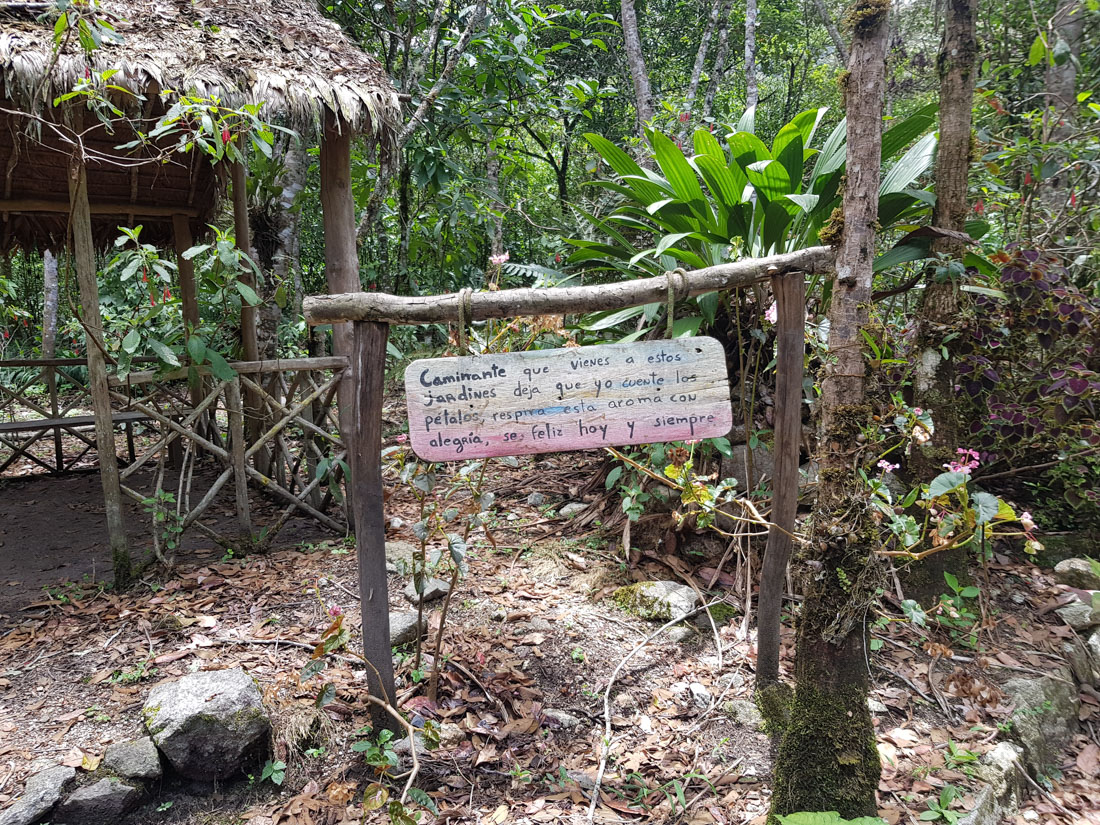 Caminante que vienes a estos
jardines deja que yo cuente los
pétalos, respira esta aroma con
alegría, se feliz hoy y siempre